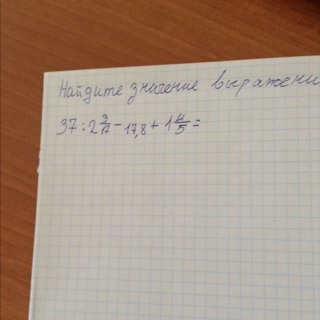 Найдите значение выражени
37 : 2 3/17 - 17,8 + 1 4/5 =